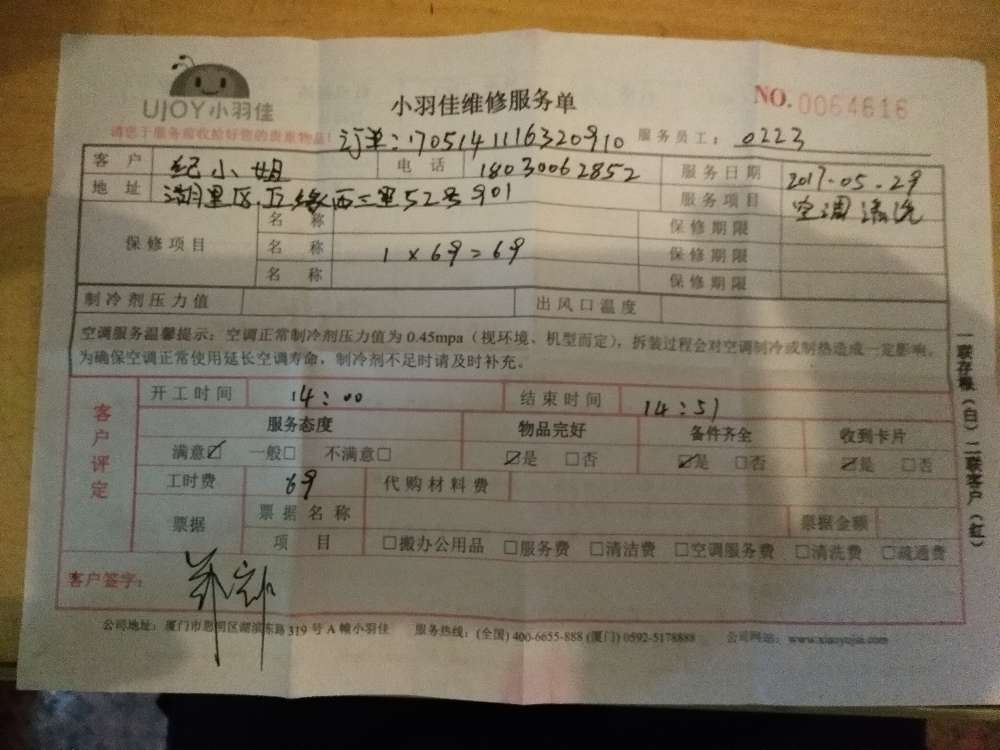 UJOY小羽佳
小羽佳维修服务单
NO.0064616
请您于服务前收拾好您的贵重物品!
订单:1705141116320910 服务员工: 0223
客户 纪小姐 电话 18030062852 服务日期 2017.05.29
地址 湖里区.五缘西二里52号901 服务项目 空调清洗
保修项目 名称 保修期限
名称 1×69=69 保修期限
名称 保修期限
制冷剂压力值 出风口温度
空调服务温馨提示:空调正常制冷剂压力值为0.45mpa(视环境、机型而定),拆装过程会对空调制冷或制热造成一定影响。
为确保空调正常使用延长空调寿命,制冷剂不足时请及时补充。
客户评定
开工时间 14:00 结束时间 14:51
服务态度 物品完好 备件齐全 收到卡片
满意☑ 一般□ 不满意□ ☑是 □否 ☑是 □否 ☑是 □否
工时费 69 代购材料费
票据 票据名称 票据金额
项目 □搬办公用品 □服务费 □清洁费 □空调服务费 □清洗费 □疏通费
客户签字:
公司地址:厦门市思明区湖滨东路319号A幢小羽佳 服务热线:(全国)400-6655-888(厦门)0592-5178888 公司网站:www.xiaoyujia.com
一联存根(白)二联客户(红)